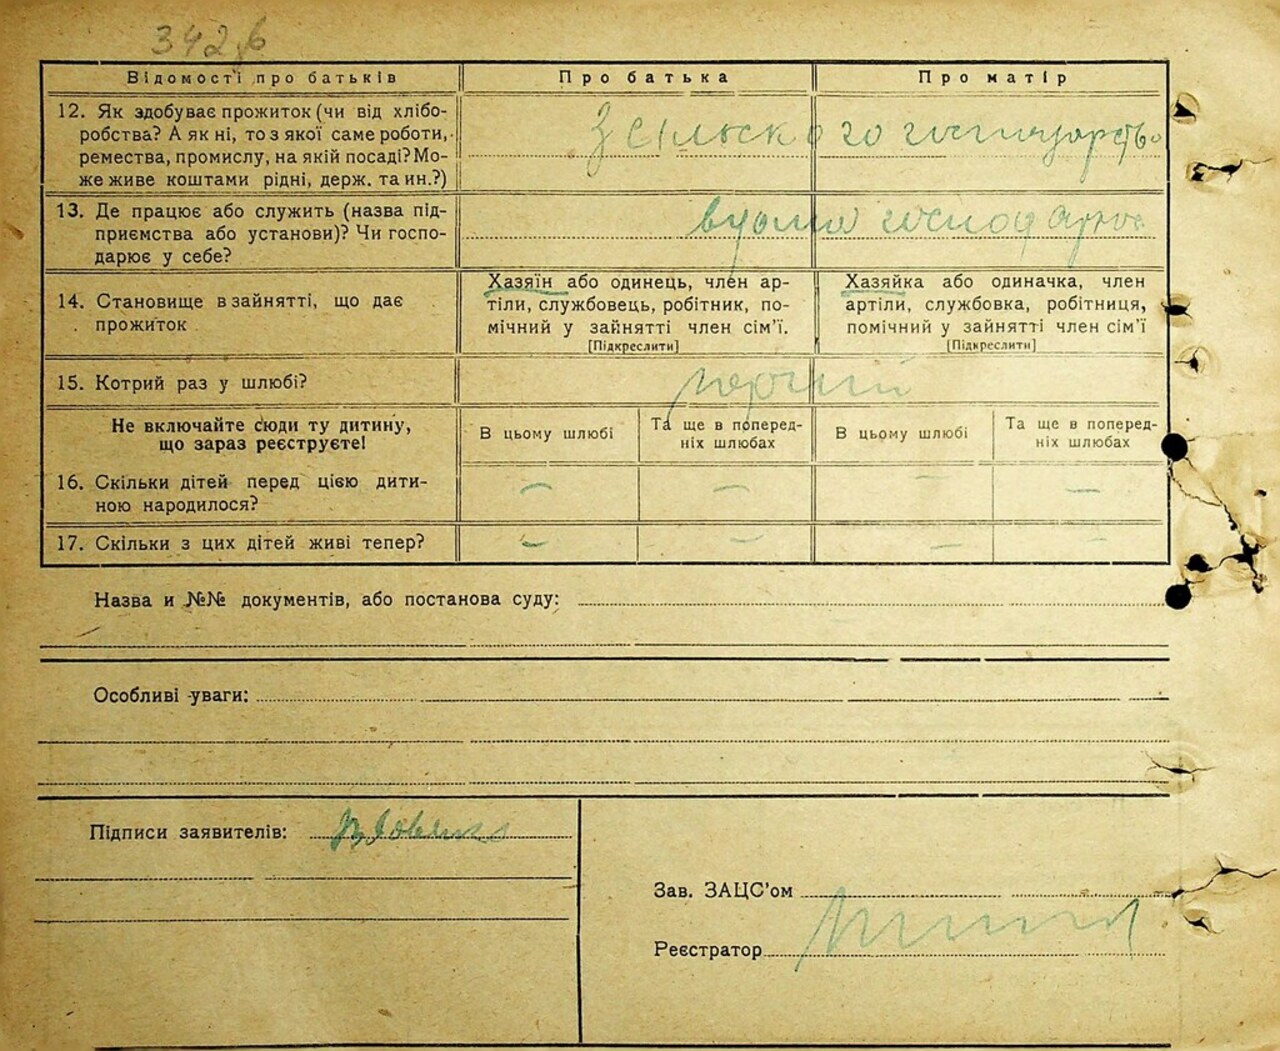 342
Відомості про батьків
Про батька
Про матір
12. Як здобуває прожиток (чи від хлібо-
робства? А як ні, то з якої саме роботи,
ремества, промислу, на якій посаді? Мо-
же живе коштами рідні, держ. та ин.?)
З сільського
13. Де працює або служить (назва під-
приємства або установи)? Чи госпо-
дарює у себе?
14. Становище в зайнятті, що дає
прожиток
Хазяїн або одинець, член ар-
тіли, службовець, робітник, по-
мічний у зайнятті член сім'ї.
[Підкреслити]
Хазяйка або одиначка, член
артіли, службовка, робітниця,
помічний у зайнятті член сім'ї
[Підкреслити]
15. Котрий раз у шлюбі?
Не включайте сюди ту дитину,
що зараз реєструєте!
В цьому шлюбі
Та ще в поперед-
ніх шлюбах
В цьому шлюбі
Та ще в поперед-
ніх шлюбах
16. Скільки дітей перед цією дити-
ною народилося?
– – – –
17. Скільки з цих дітей живі тепер?
– – – –
Назва и №№ документів, або постанова суду:
Особливі уваги:
Підписи заявителів:
Зав. ЗАЦС'ом
Реєстратор